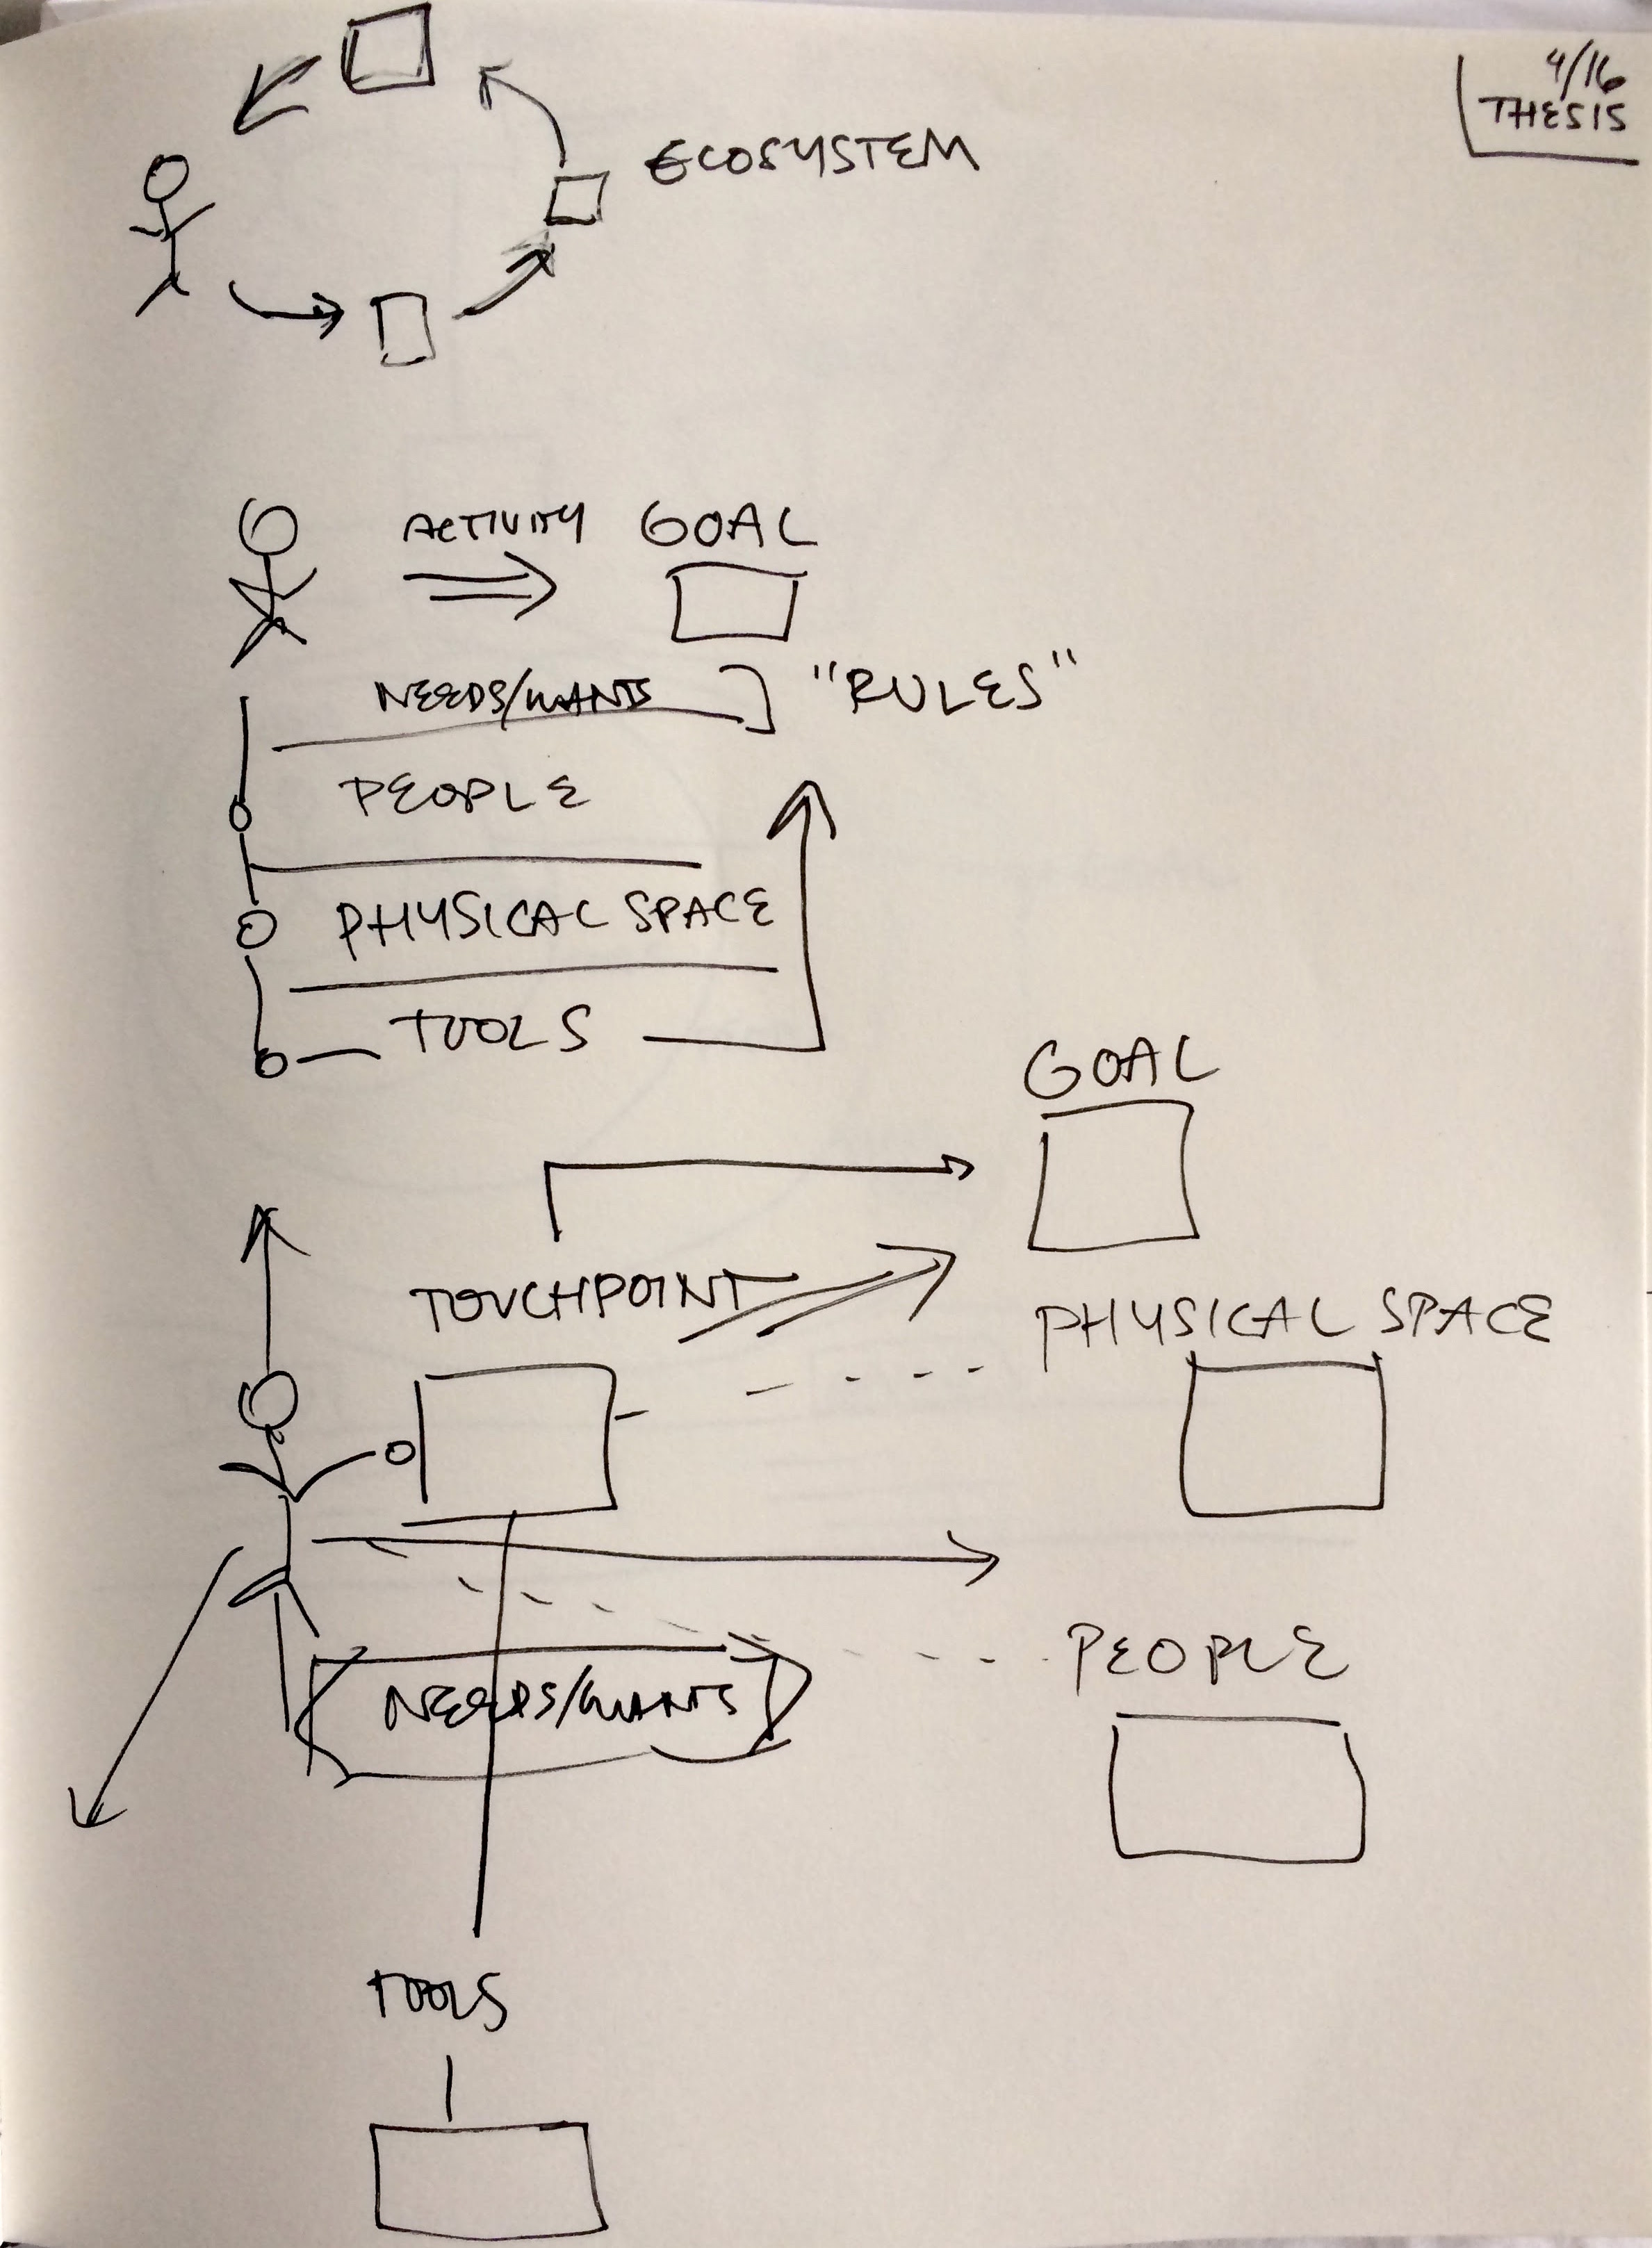 4/16
THESIS
ECOSYSTEM
ACTIVITY GOAL
NEEDS/WANTS "RULES"
PEOPLE
PHYSICAL SPACE
TOOLS
GOAL
TOUCHPOINT
PHYSICAL SPACE
PEOPLE
NEEDS/WANTS
TOOLS